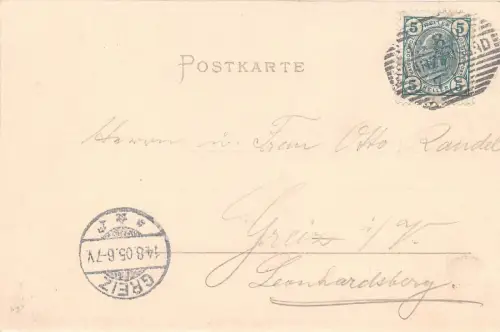 5 5
HELLER
POSTKARTE
Herrn u. Frau Otto Randel
Greiz i/V.
Leonhardsberg.
14.8.05.6-7V.
GREIZ